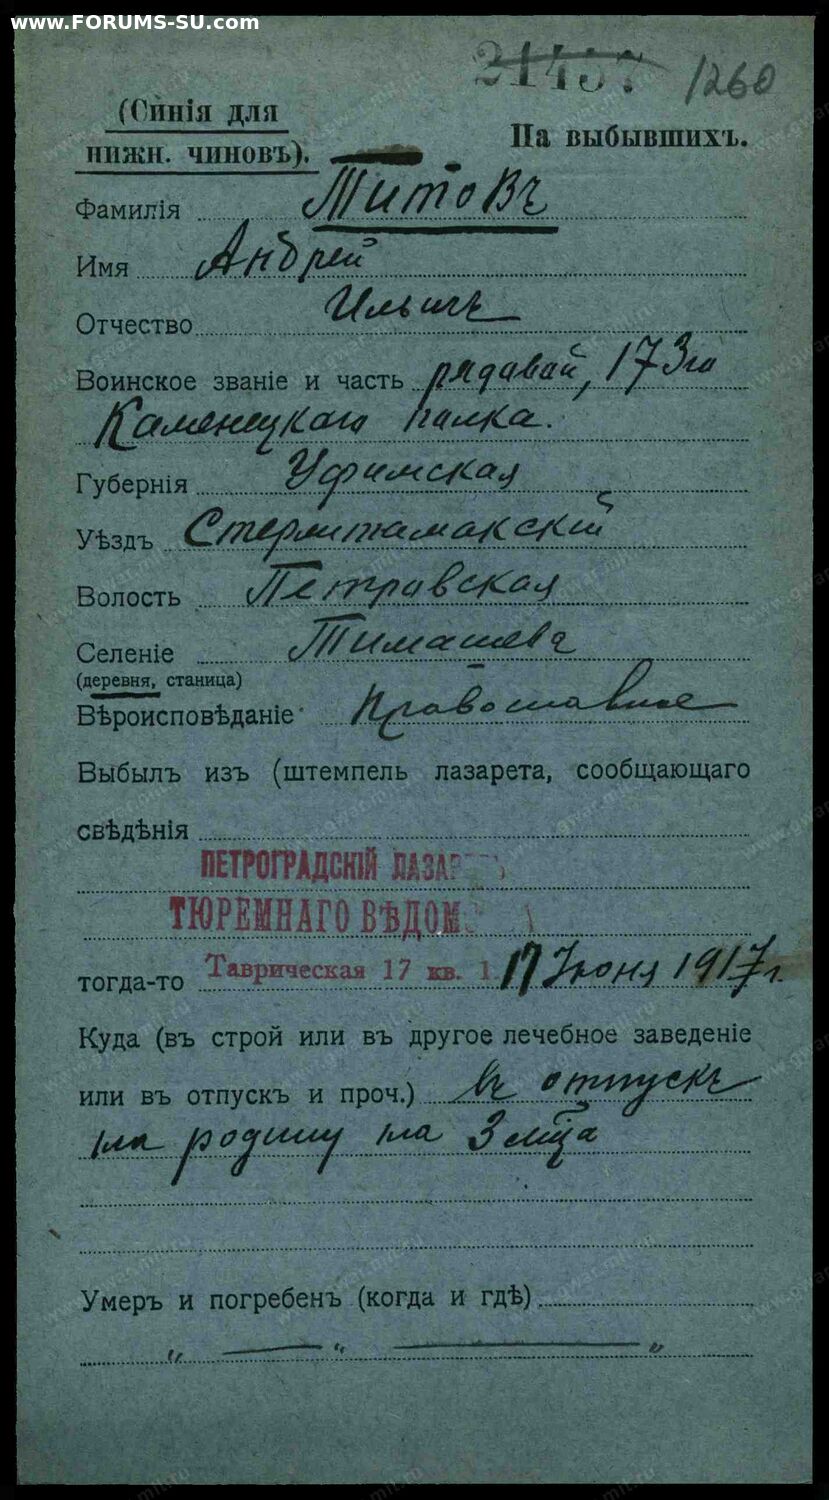 www.FORUMS-SU.com
21457 1260
(Синія для
нижн. чиновъ).
На выбывшихъ.
Фамилія Титовъ
Имя Андрей
Отчество Ильичъ
Воинское званіе и часть рядавай, 173го
Каменецкаго палка.
Губернія Уфимская
Уѣздъ Стерлитамакскій
Волость Петравская
Селеніе Тимашева
(деревня, станица)
Вѣроисповѣданіе Православное
Выбылъ изъ (штемпель лазарета, сообщающаго
свѣдѣнія
ПЕТРОГРАДСКІЙ ЛАЗАР
ТЮРЕМНАГО ВѢДОМ
тогда-то Таврическая 17 кв. 1. 17 Іюня 1917 г.
Куда (въ строй или въ другое лечебное заведеніе
или въ отпускъ и проч.) въ отпускъ
на родину на 3 м-ца
Умеръ и погребенъ (когда и гдѣ)
„ — „ — „